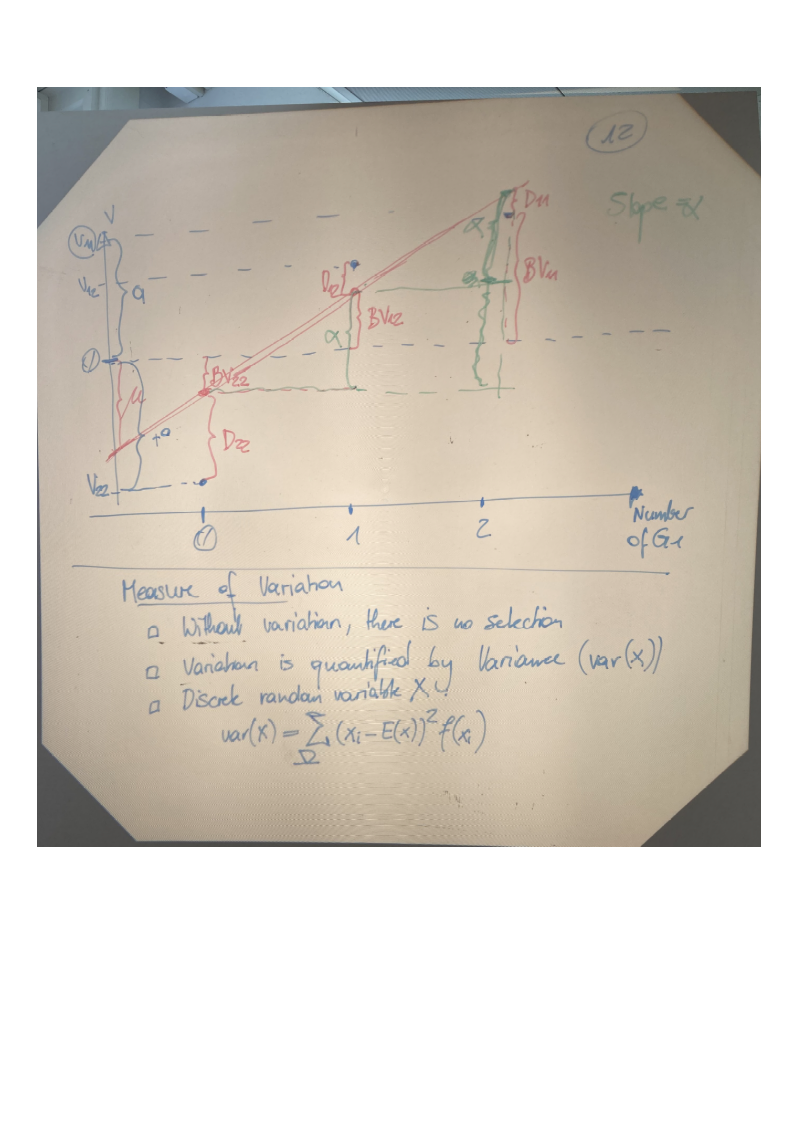 12
Slope = α
V
V11
a
V12
D12
α
BV12
D11
α
BV11
BV22
μ
+a
D22
V22
0
1
2
Number
of G1
Measure of Variation
□ Without variation, there is no selection
□ Variation is quantified by Variance (var(x))
□ Discrete random variable X:
var(X) = ∑Ω (xi - E(x))² f(xi)